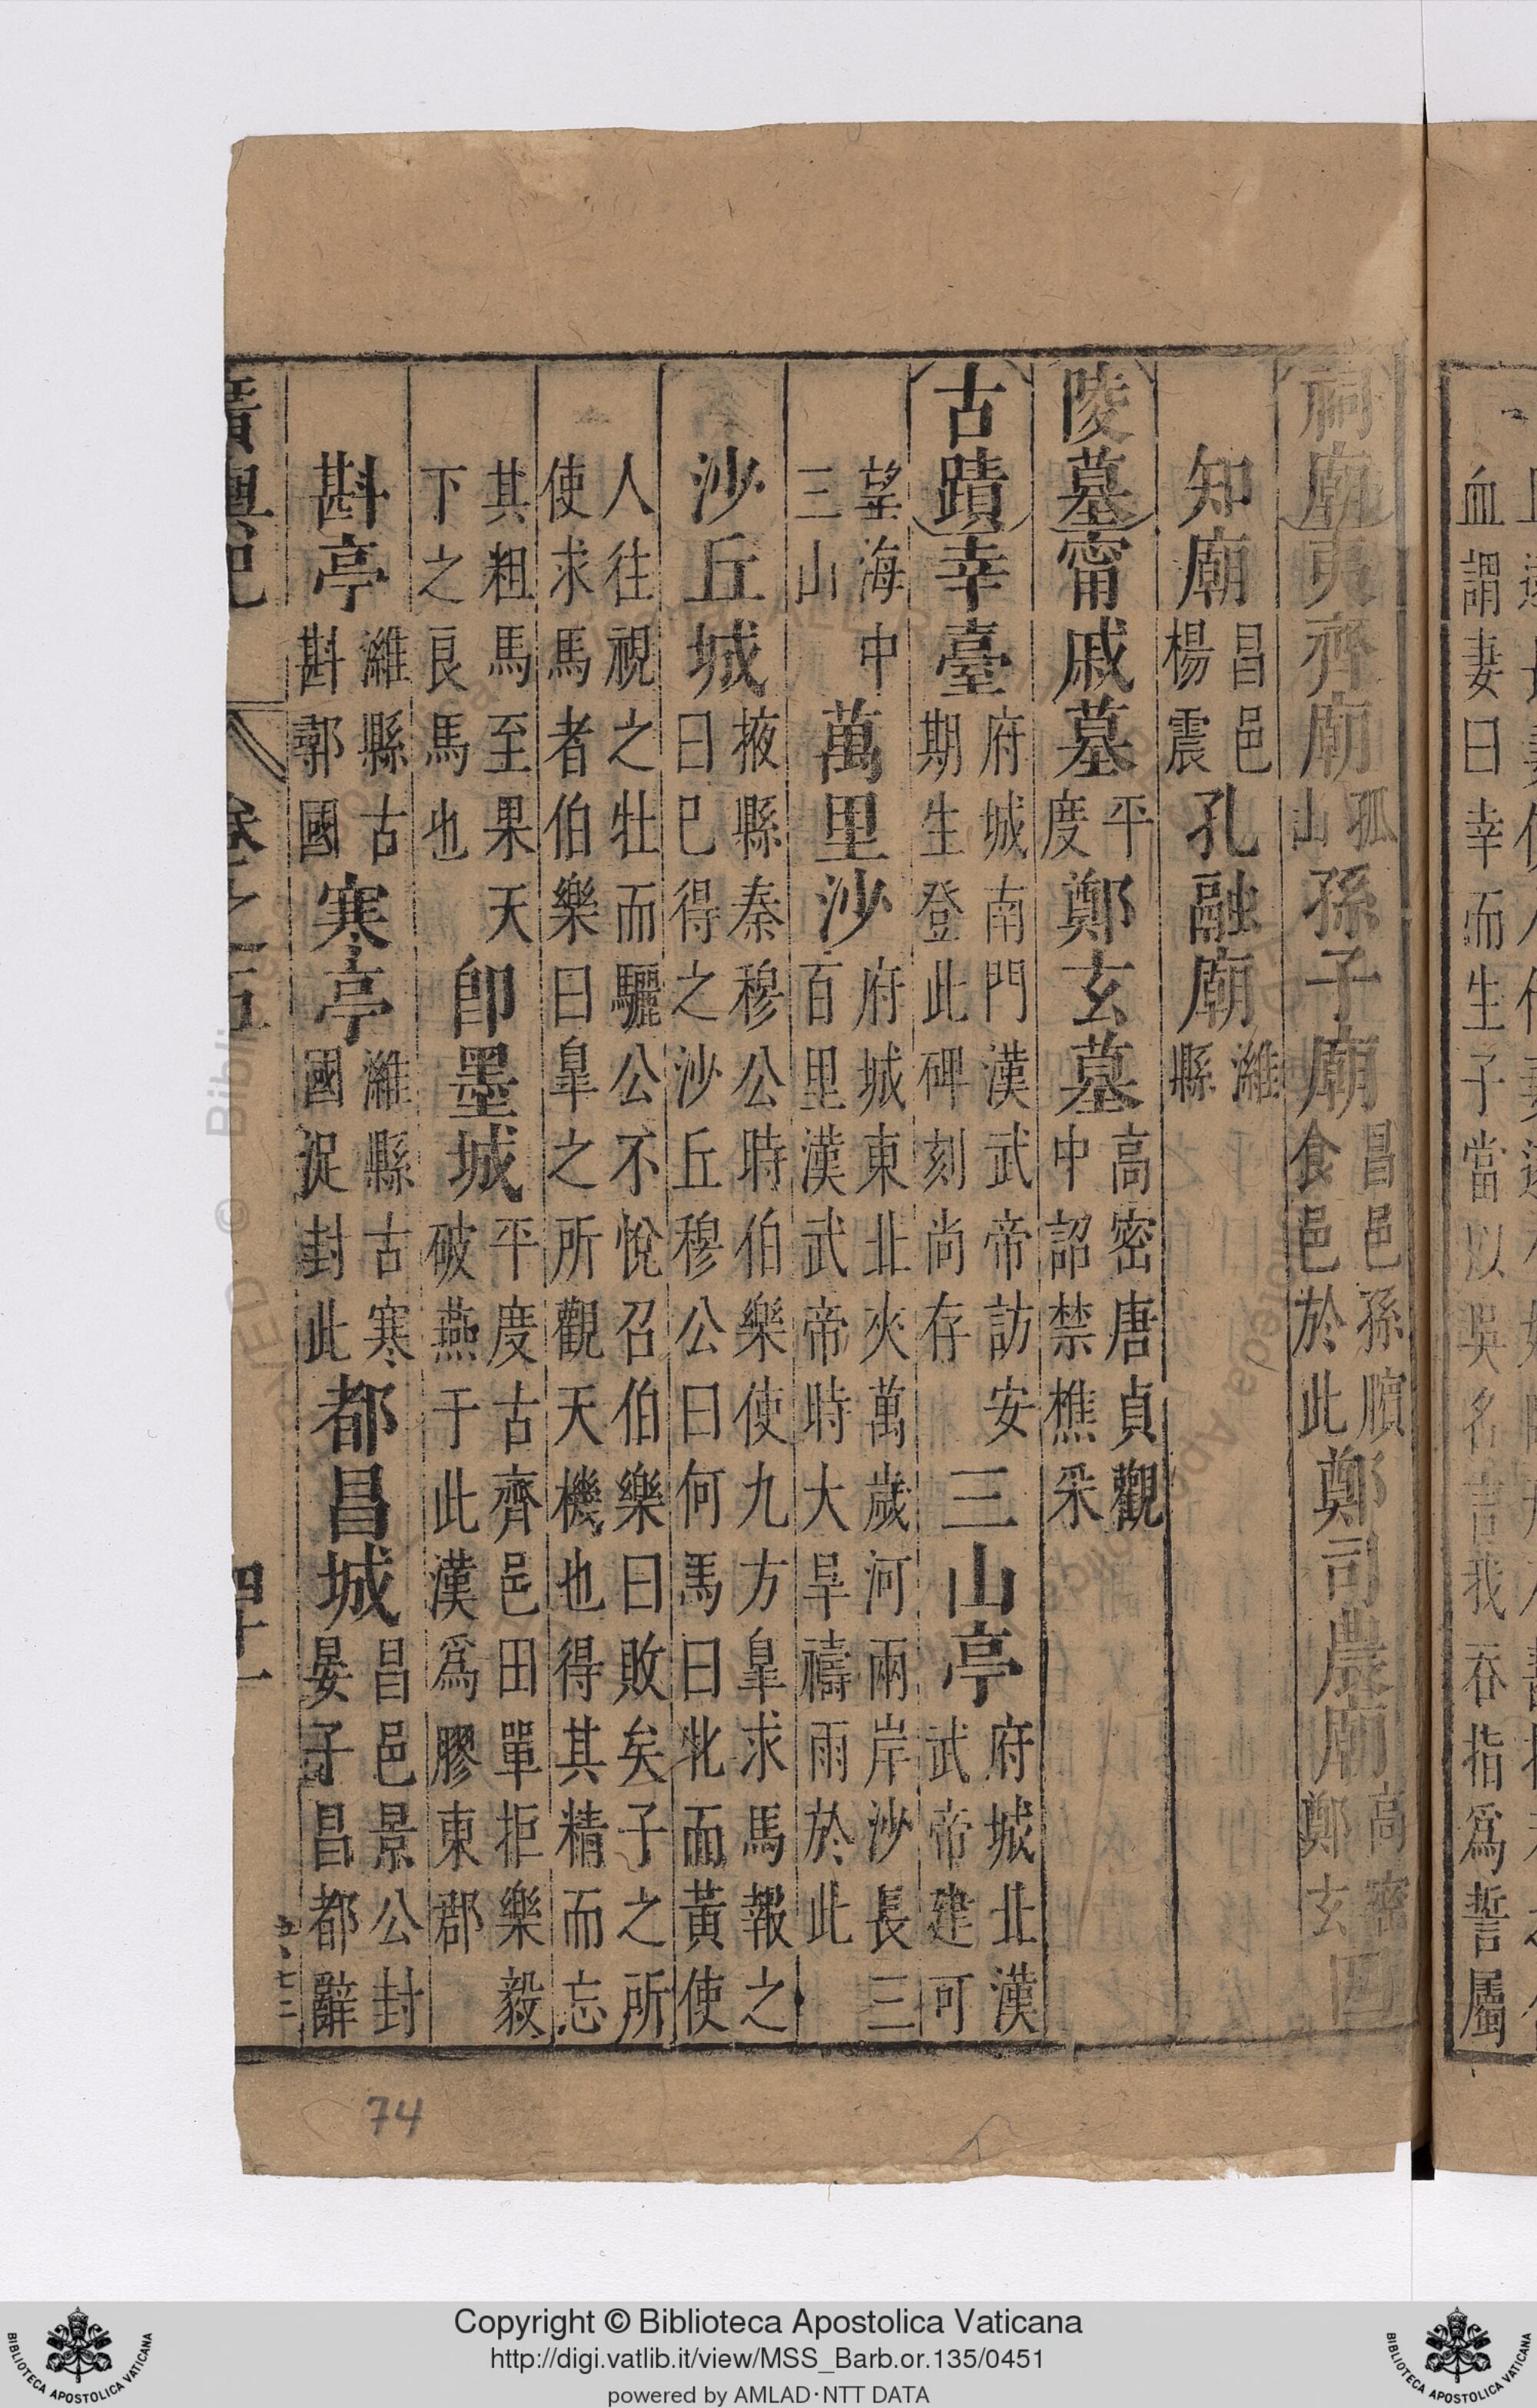 祠廟夷齊廟孤山孫子廟昌邑孫臏食邑於此鄭司農廟高密鄭玄四
知廟昌邑楊震孔融廟濰縣
陵墓甯戚墓平度鄭玄墓高密唐貞觀中詔禁樵采
古蹟幸臺府城南門漢武帝訪安期生登此碑刻尚存三山亭府城北漢武帝建可
望海中三山萬里沙府城東北夾萬歲河兩岸沙長三百里漢武帝時大旱禱雨於此
沙丘城掖縣秦穆公時伯樂使九方臯求馬報之曰巳得之沙丘穆公曰何馬曰牝而黃使
人往視之牡而驪公不悅召伯樂曰敗矣子之所使求馬者伯樂曰臯之所觀天機也得其精而忘
其粗馬至果天下之良馬也卽墨城平度古齊邑田單拒樂毅破燕于此漢爲膠東郡
斟亭濰縣古斟鄩國寒亭濰縣古寒國浞封此都昌城昌邑景公封晏子昌都辭
卷之五
四十一
血謂妻曰幸而生子當以吳名言我吞指爲誓屬
74
Copyright © Biblioteca Apostolica Vaticana
http://digi.vatlib.it/view/MSS_Barb.or.135/0451
powered by AMLAD·NTT DATA
BIBLIOTECA APOSTOLICA VATICANA
BIBLIOTECA APOSTOLICA VATICANA